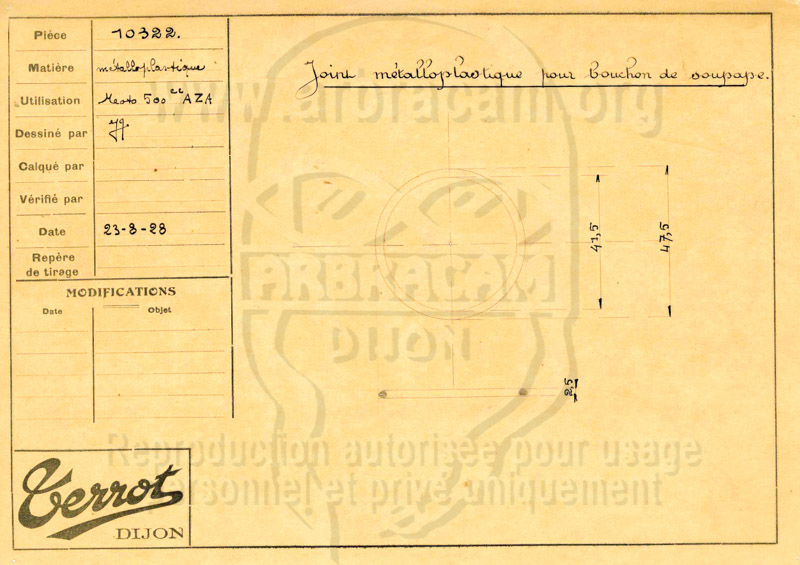 Pièce 10322.
Matière métalloplastique
Utilisation Moto 500 cc AZA
Dessiné par
Calqué par
Vérifié par
Date 23-8-28
Repère
de tirage
MODIFICATIONS
Date Objet
Joint métalloplastique pour bouchon de soupape.
www.arbracam.org
41,5
47,5
ARBRACAM
DIJON
2,5
Reproduction autorisée pour usage
personnel et privé uniquement
Terrot
DIJON